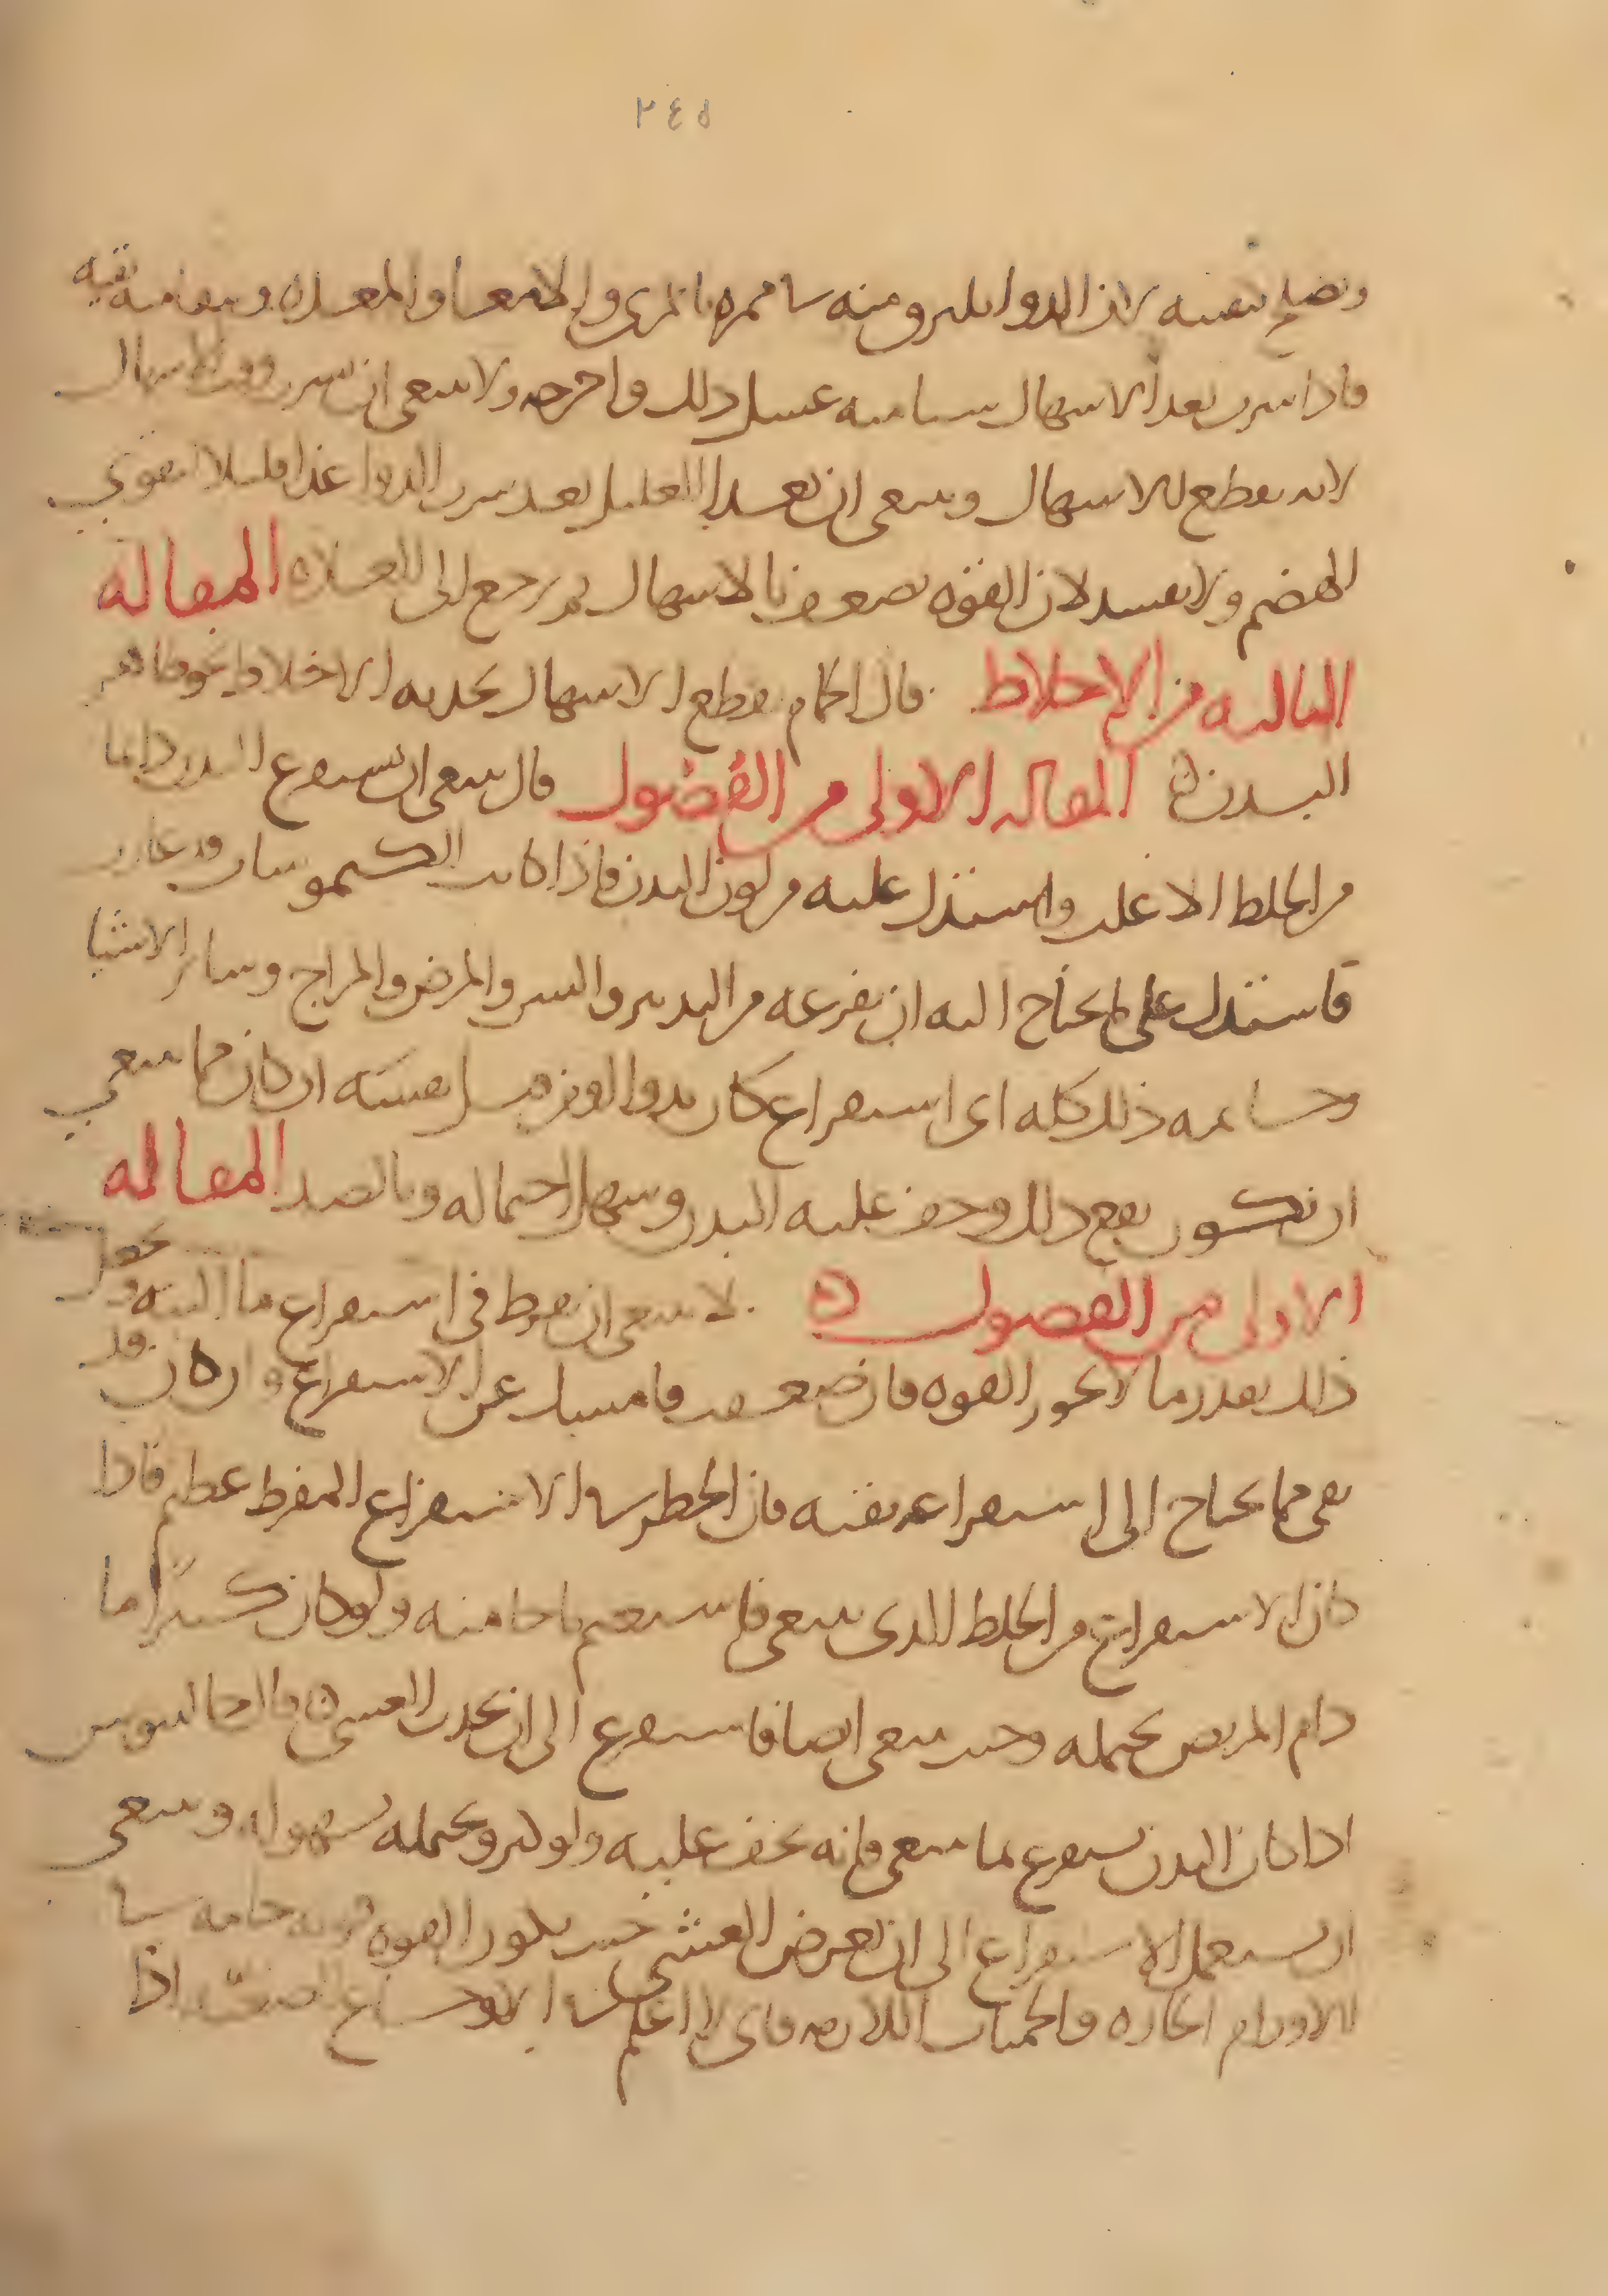 ٢٤٥
ويصلح بقيته لأن الدوا يلزق منه في ممره بالمرى والامعا والمعده ويبقا منه بقيه
فاذا شرب بعد الاسهال شيا منه غسل ذلك واخرجه ولا ينبغى ان يشرب وقت الاسهال
لانه يقطع الاسهال وينبغى ان يغذا العليل بعد شرب الدوا غذا قليلا لتقوى
الهضم ولا يفسد لان القوه تضعف بالاسهال ثم يرجع الى العاده المقاله
الثالثه من الاخلاط قال الحمام يقطع الاسهال بجذبه الاخلاط نحو ظاهر
البدن المقاله الاولى من الفصول قال ينبغى ان تستفرغ البدن دايما
من الخلط الاغلب واستدل عليه من لون البدن فاذا كانت الكيموسات قد غارت
فاستدل على ما يحتاج اليه ان تفرغه من التدبير والسن والمرض والمزاج وساير الاشيا
وحسا نمه ذلك كله اى استفراغ كان بدوا او نزف تفسه ان كان مما ينبغى
ان يكون نفع ذلك وخف عليه البدن وسهل احتماله وبالضد المقاله
الاولى من الفصول لا ينبغى ان تفرط فى استفراغ ما البته
ذلك بقدر ما لا تخور القوه فان ضعفت فامسك عن الاستفراغ وان كان قد
بقى مما يحتاج الى استفراغه بقيه فان الخطر في الاستفراغ المفرط عظيم فاذا
كان الاستفراغ من الخلط الذى ينبغى فاستعم ما حا منه ولو كان كثيرا ما
دام المريض يحتمله وحيث ينبغى ايضا فاستفرغ الى ان يحدث الغشى قال جالينوس
اذا كان البدن يستفرغ مما ينبغى فانه يخف عليه ولو كثر ويحتمله بسهوله وينبغى
ان يستعمل الاستفراغ الى ان يعرض الغشى حيث يكون القوه حامه
الاورام الحاره والحميات اللازمه فاى لا اعلم في الاوجاع الصعبة اذا